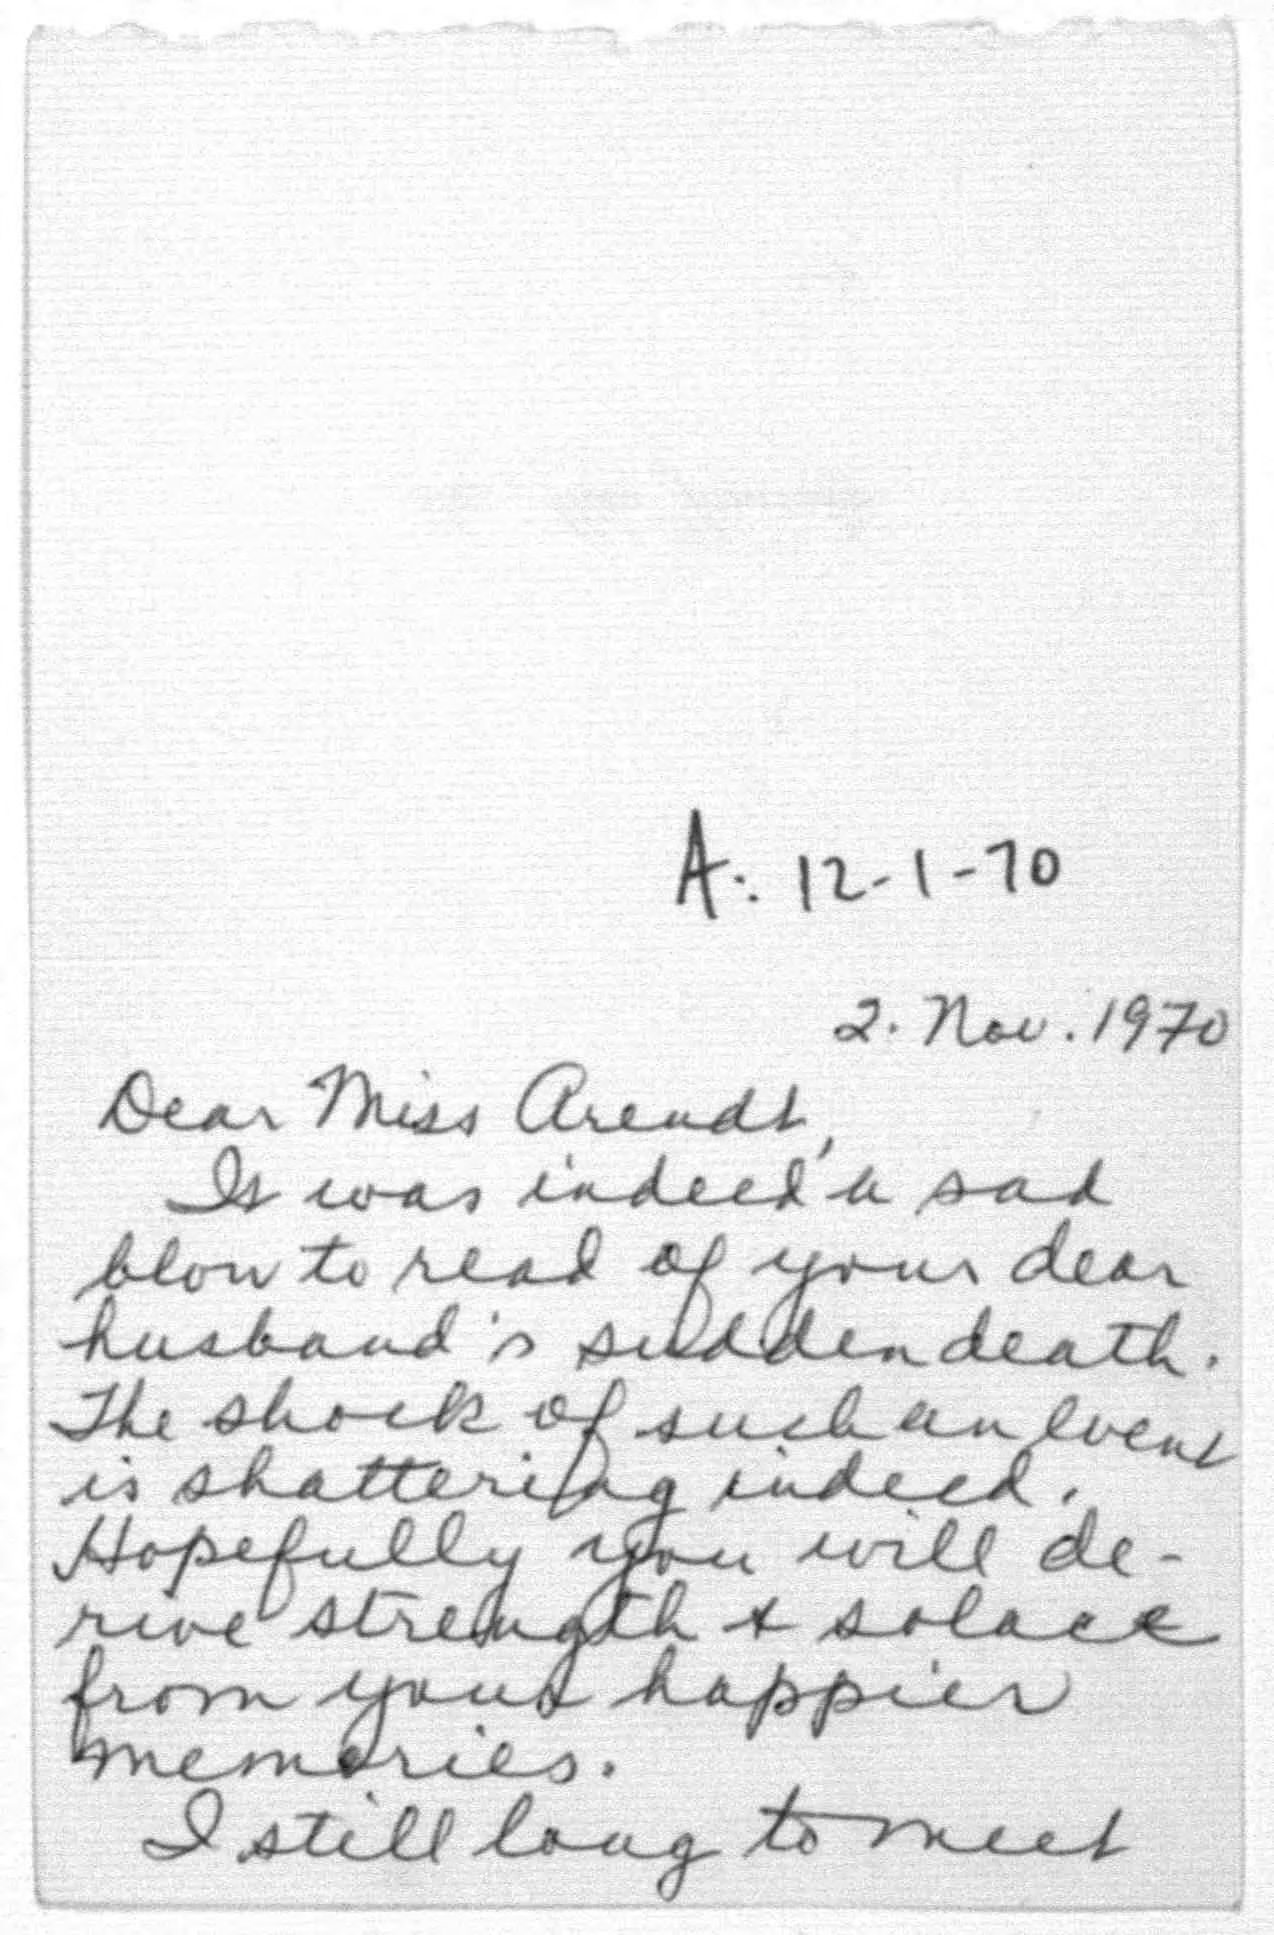 A: 12-1-70
2. Nov. 1970
Dear Miss Arendt,
It was indeed a sad
blow to read of your dear
husband's sudden death.
The shock of such an event
is shattering indeed.
Hopefully you will de-
rive strength & solace
from your happier
memories.
I still long to meet